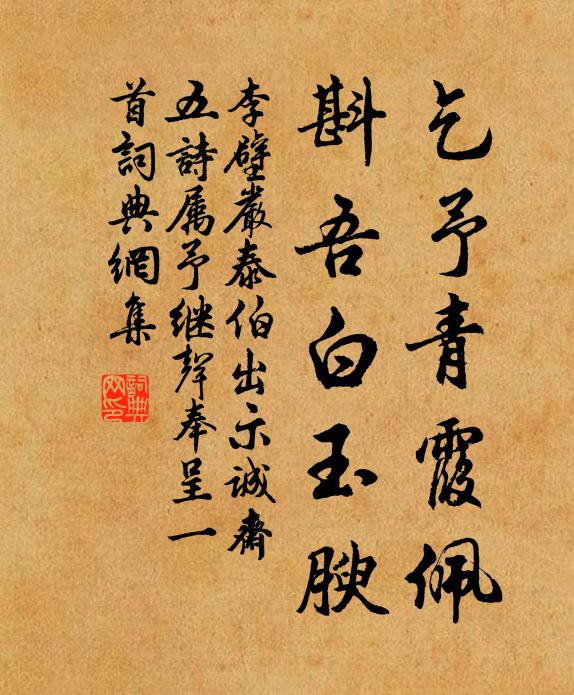 乞予青霞佩
斟吾白玉腴
李壁嚴泰伯出示誠齋
五詩属予继聲奉呈一
首詞典網集
詞典
网印